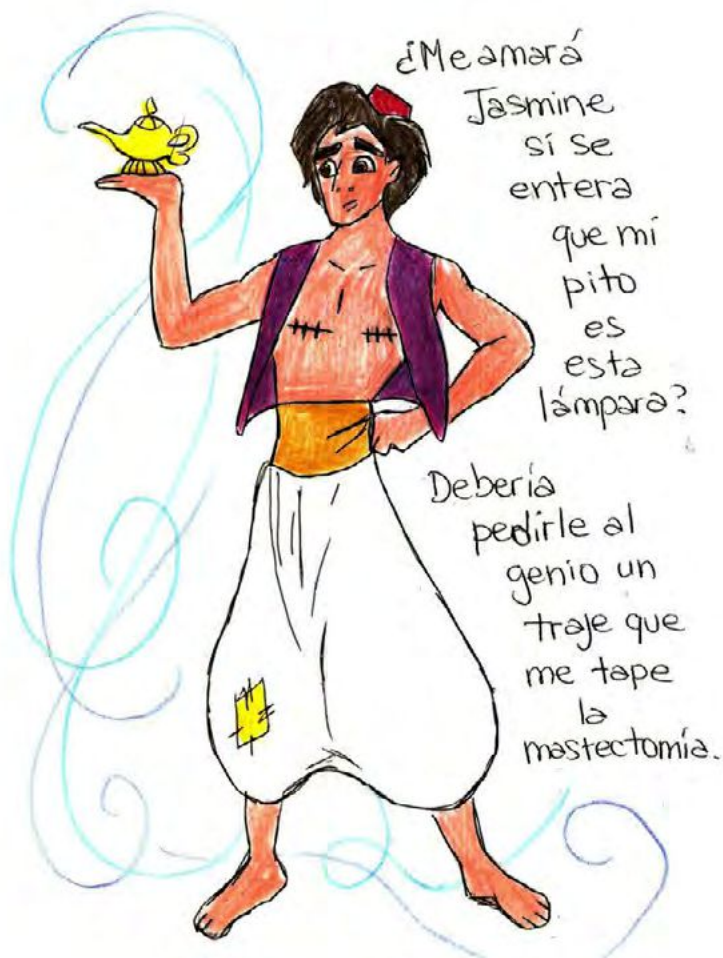 ¿Me amará
Jasmine
sí se
entera
que mi
pito
es
esta
lámpara?
Debería
pedirle al
genio un
traje que
me tape
la
mastectomía.